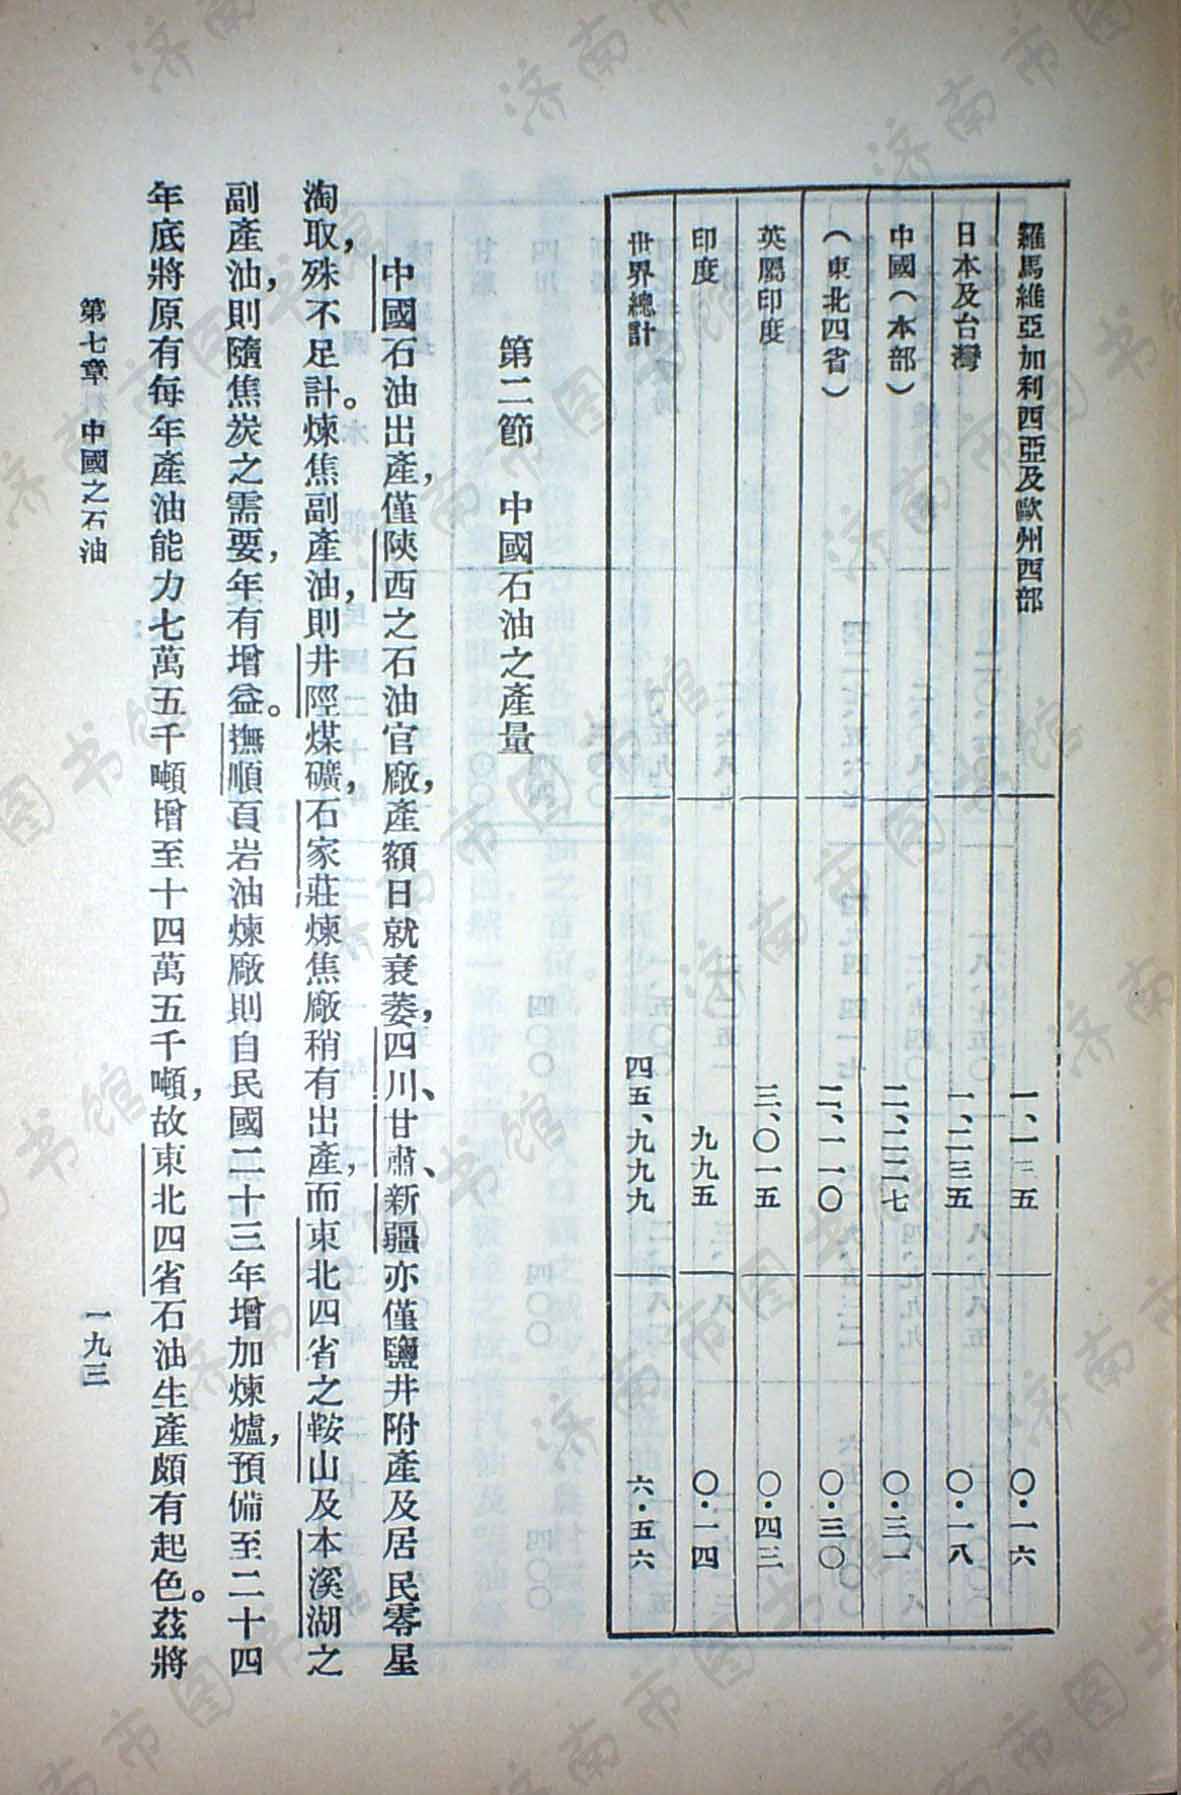 羅馬維亞加利西亞及歐州西部 一、一三五 〇·一六
日本及台灣 一、二三五 〇·一八
中國（本部） 二、二二七 〇·三一
（東北四省） 二、一一〇 〇·三〇
英屬印度 三、〇一五 〇·四三
印度 九九五 〇·一四
世界總計 四五、九九九 六·五六
第二節 中國石油之產量
中國石油出產，僅陝西之石油官廠，產額日就衰萎，四川、甘肅、新疆亦僅鹽井附產及居民零星
淘取，殊不足計。煉焦副產油，則井陘煤礦，石家莊煉焦廠稍有出產，而東北四省之鞍山及本溪湖之
副產油，則隨焦炭之需要，年有增益。撫順頁岩油煉廠則自民國二十三年增加煉爐，預備至二十四
年底將原有每年產油能力七萬五千噸增至十四萬五千噸，故東北四省石油生產頗有起色。茲將
第七章 中國之石油 一九三
济南市图书馆